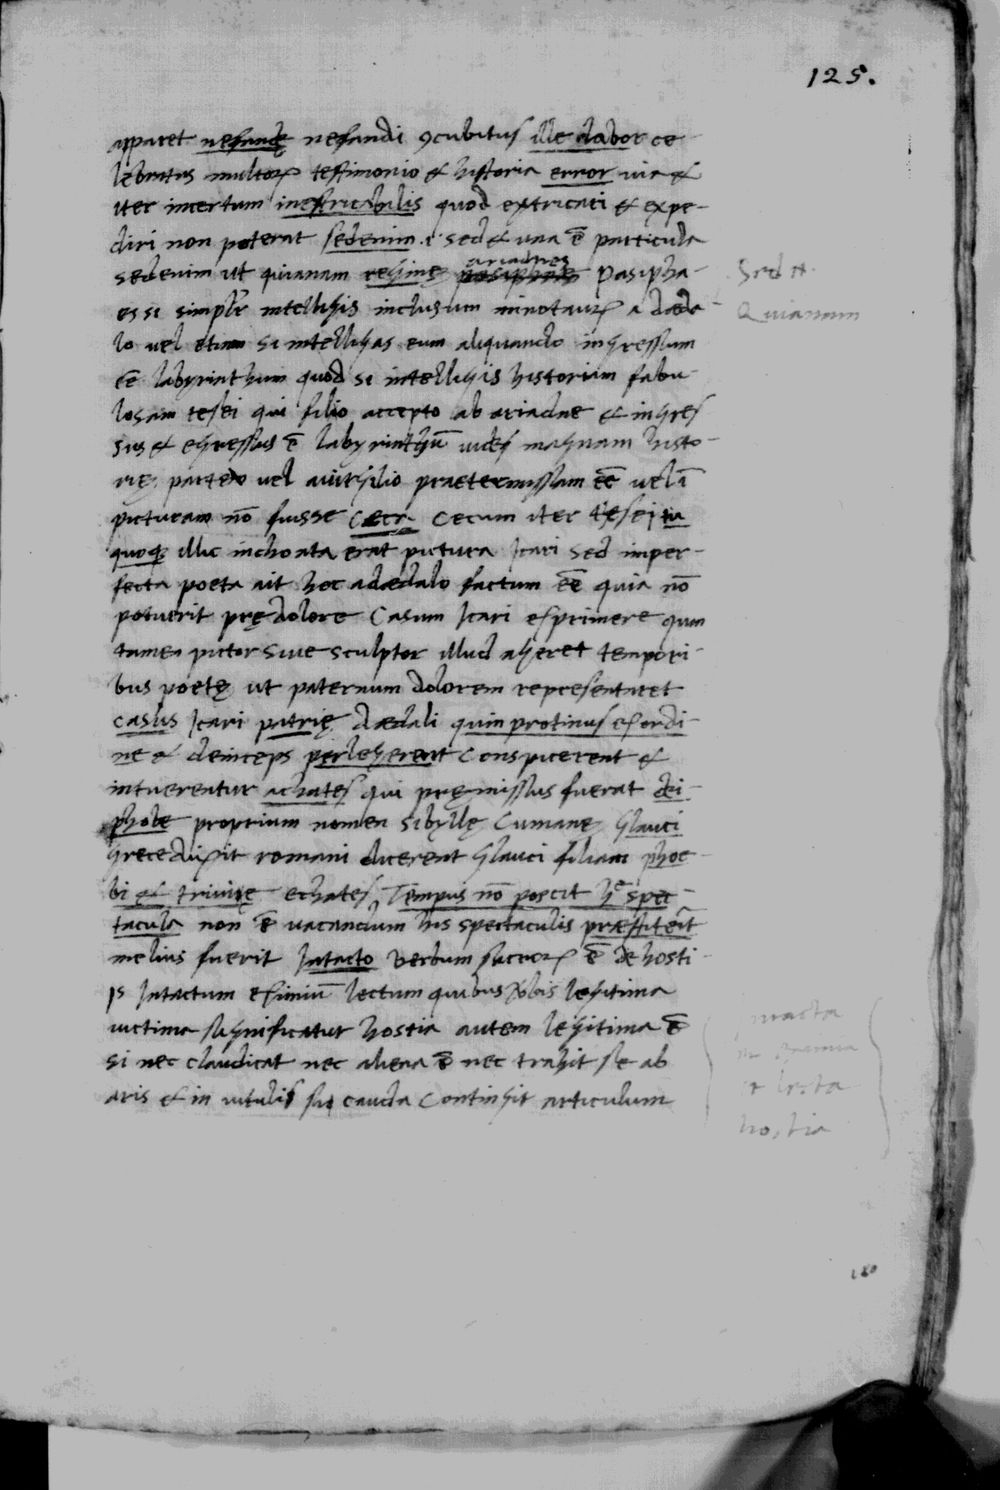 125.
apparet nefandę nefandi ꝯcubitus ille labor ce-
lebratus multoꝝ testimonio & historia error via &
iter incertum inestricabilis quod extricari & expe-
diri non poterat sedenim .i. sed & una ē particula
ariadnes
sedenim ut quianam reginę pasiphaes Pasipha-
es si simplr intelligis inclusum minotauꝝ a deda-
lo vel etiam si intelligas eum aliquando ingressum
eē labyrinthum quod si intelligis historiam fabu-
losam tesei qui filio accepto ab ariadne & ingres
sus & egressus ē labyrinthū vides magnam histo-
rię partem vel a virgilio praetermissam eē vel ī
picturam nō fuisse Caeca Cecum iter tesei tu
quoqꝫ illic inchoata erat pictura Icari sed imper-
fecta poeta ait hoc a dædalo factum eē quia nō
potuerit prę dolore Casum Icari esprimere quin
tamen pictor sive sculptor illud ageret tempori-
bus poetę ut paternum dolorem representaret
casus Icari patrię dædali quin protinus es ordi-
ne & deinceps perlegerent Conspicerent &
intuerentur achates qui pręmissus fuerat dei-
phobe proprium nomen sibyllę Cumanę Glauci
grece dixit romani dicerent Glauci filiam phoe-
bi & trivię echates, Tempus nō poscit hᵉ spec-
tacula non ē vacandum his spectaculis præstiterit
melius fuerit Intacto verbum sacroꝝ ē de hosti-
js Intactum esimiū lectum quibus vbis legitima
victima significatur hostia autem legitima ē
si nec claudicat nec aliena ē nec trahit se ab
aris & in vitulis si cauda Contingit articulum
Sed &
Quianam
intacta
hostia